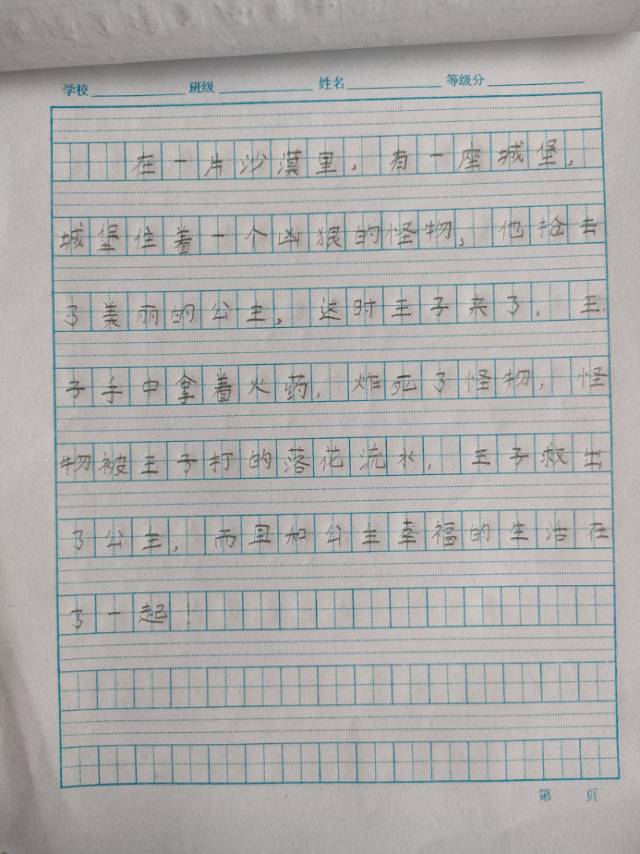 学校 班级 姓名 等级分
在一片沙漠里，有一座城堡，
城堡住着一个凶狠的怪物，他抢去
了美丽的公主，这时王子来了，王
子手中拿着火药，炸死了怪物，怪
物被王子打的落花流水，王子救出
了公主，而且和公主幸福的生活在
了一起！
第 页